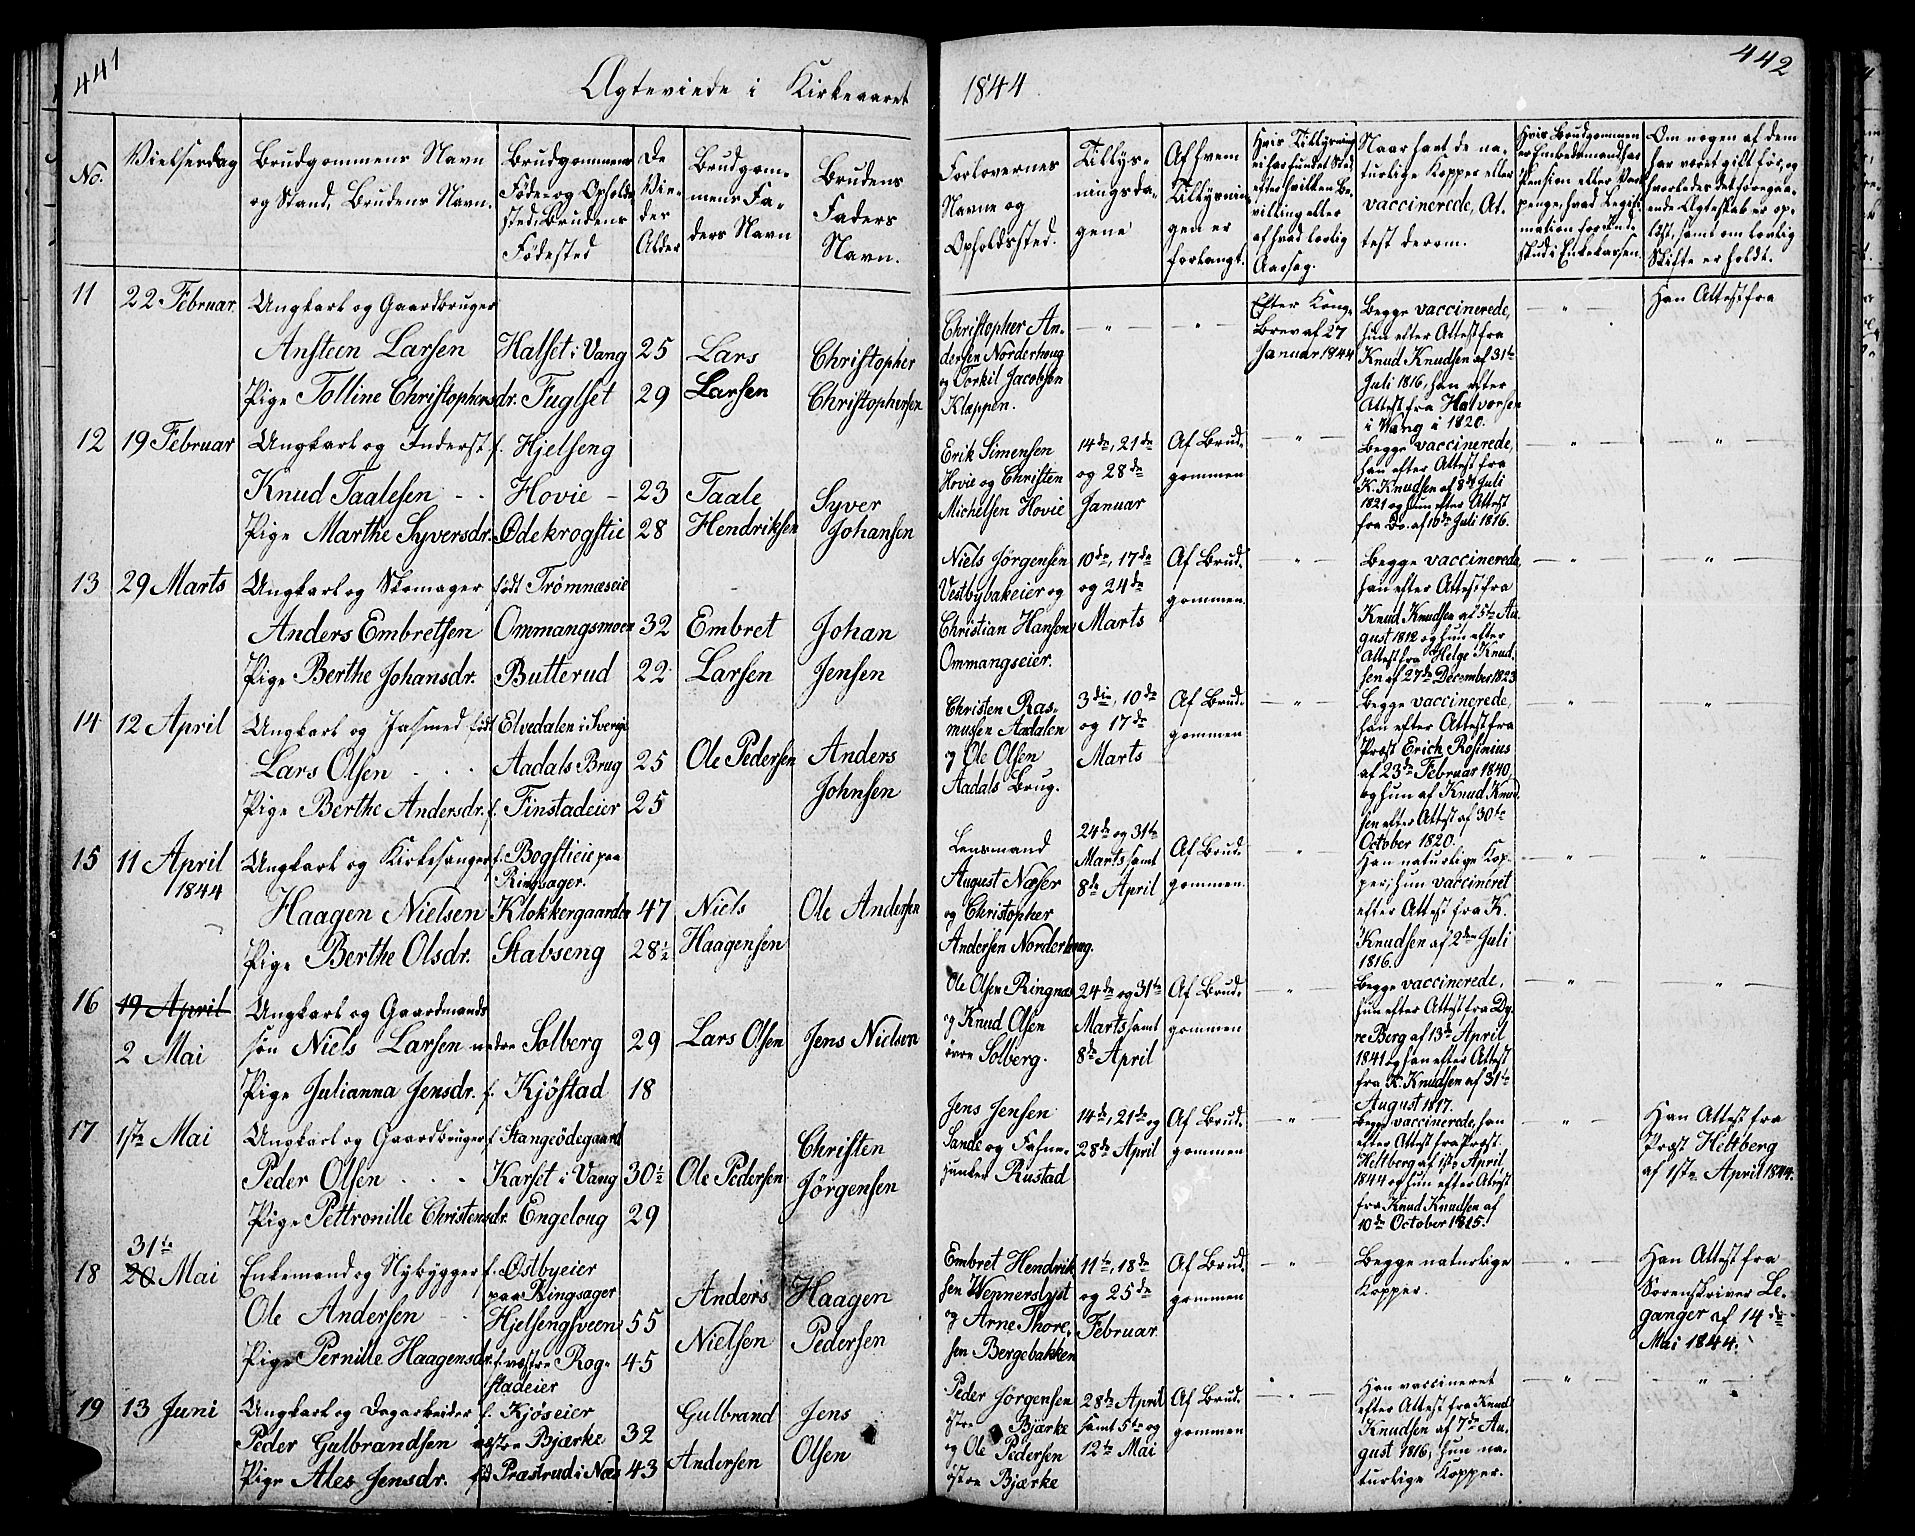 441
Ægteviede i Kirkeaaret
1844.
442
No.
Vielsesdag
Brudgommens Navn
og Stand, Brudens Navn.
Brudgommens
Føde- og Opholds-
sted, Brudens
Fødested
De
Vie-
des
Alder
Brudgom-
mens Fa-
ders Navn
Brudens
Faders
Navn.
Forlovernes
Navne og
Opholdssted.
Tillys-
ningsda-
gene
Af hvem
Tillysnin-
gen er
forlangt.
Hvis Tillysning
ei har fundet Sted
efter hvilken Be-
villing eller
af hvad lovlig
Aarsag.
Naar havt de na-
turlige Kopper eller
vaccinerede, At-
test derom.
Hvis Brudgommen
er Embedsmand has
Pension eller Vart-
penge, hvad Legiti-
mation for Ind-
skud i Enkekassen.
Om nogen af dem
har været gift før, og
hvorledes det foregaa-
ende Ægteskab er op-
løst, samt om lovlig
Skifte er holdt.
11
22 Februar.
Ungkarl og Gaardbruger
Ansteen Larsen
Pige Tolline Christophersdr.
Halset i Vang
Fuglset
25
29
Lars
Larsen
Christopher
Christophersen
Christopher An-
dersen Norderhoug
og Torkil Jacobsen
Klæppen.
Efter Kong.
Brev af 27
Januar 1844
Begge vaccinerede,
hun efter Attest fra
Knud Knudsen af 31te
Juli 1816, han efter
Attest fra Halvorsen
i Vang i 1820.
Han Attest fra
12
19 Februar
Ungkarl og Inderst f.
Knud Taalesen
Pige Marthe Syversdr.
Hjelseng
Hovie
Ødekrogstie
23
28
Taale
Hendriksen
Syver
Johansen
Erik Simensen
Hovie og Christen
Michelsen Hovie
14de, 21de
og 28de
Januar
Af Brud-
gommen
Begge vaccinerede,
han efter Attest fra
K. Knudsen af 8de Juli
1821 og hun efter Attest
fra Do. af 16de Juli 1816.
13
29 Marts
Ungkarl og Skomager
Anders Embretsen
Pige Berthe Johansdr.
født Trømnæseie
Ommangsmoen
Butterud
32
22
Embret
Larsen
Johan
Jensen
Niels Jørgensen
Vestbybakeier og
Christian Hansen
Ommangseier.
10de, 17de
og 24de
Marts
Af Brud-
gommen.
Begge vaccinerede,
han efter Attest fra
Knud Knudsen af 5te Au-
gust 1812 og hun efter
Attest fra Helge Knud-
sen af 27de December 1823
14
12 April
Ungkarl og Jasmed født
Lars Olsen
Pige Berthe Andersdr. f.
Elvedalen i Sverige
Aadals Brug
Finstadeier
25
25
Ole Pedersen
Anders
Johnsen
Christen Ras-
musen Aadalen
og Ole Olsen
Aadals Brug.
3die, 10de
og 17de
Marts
Af Brud-
gommen
Begge vaccinerede,
han efter Attest fra
Præst Erich Rosinius
af 23de Februar 1840,
og hun af Knud Knud-
sen efter Attest af 30te
October 1820.
15
11 April
1844
Ungkarl og Kirkesanger
Haagen Nielsen
Pige Berthe Olsdr.
f. Bogstieie paa
Ringsager.
Klokkergaarden
Stabseng
47
28½
Niels
Haagensen
Ole Andersen
Lensmand
August Næser
og Christopher
Andersen Norderhoug.
24de og 31te
Marts samt
8de April
Af Brud-
gommen.
Han naturlige Kop-
per; hun vaccineret
efter Attest fra K.
Knudsen af 2den Juli
1816.
16
19 April
2 Mai
Ungkarl og Gaardmands
søn Niels Larsen
Pige Julianna Jensdr. f.
nedre Solberg
Kjøstad
29
18
Lars Olsen
Jens Nielsen
Ole Olsen Ringnæs
og Knud Olsen
øvre Solberg.
24de og 31te
Marts samt
8de April
Af Brud-
gommen
Begge vaccinerede,
hun efter Attest fra Dy-
re Berg af 13de April
1841 og han efter Attest
fra K. Knudsen af 31te
August 1817.
17
1ste Mai
Ungkarl og Gaardbruger
Peder Olsen
Pige Pettronille Christensdr.
f. Stangeødegaard
Karset i Vang
Engeloug
30½
29
Ole Pedersen
Christen
Jørgensen
Jens Jensen
Sande og Fahne-
junker Rustad
14de, 21de og
28de April
Af Brud-
gommen
Begge vaccinerede, han
efter Attest fra Præst
Heltberg af 1ste April
1844 og hun efter Attest
fra Knud Knudsen af
10de October 1815.
Han Attest fra
Præst Heltberg
af 1ste April 1844.
18
31te
20 Mai
Enkemand og Nybygger
Ole Andersen
Pige Pernille Haagensdr.
f. Østbyeier
paa Ringsager
Hjelsengsveen
f. vestre Rog-
stadeier
55
45
Anders
Nielsen
Haagen
Pedersen
Embret Hendrik-
sen Wennerslyst
og Arne Thore-
sen Bergebakken
11te, 18de
og 25de
Februar.
Af Brud-
gommen
Begge naturlige
Kopper.
Han Attest fra
Sorenskriver Le-
ganger af 14de
Mai 1844.
19
13 Juni
Ungkarl og Dagarbeider
Peder Gulbrandsen
Pige Ales Jensdr.
f. Kjøseier
østre Bjærke
fød Præstrud i Næs
32
43
Gulbrand
Andersen
Jens
Olsen
Peder Jørgensen
østre Bjærke
og Ole Pedersen
østre Bjærke
28de April
samt 5te og
12te Mai
Af Brud-
gommen
Han vaccineret
efter Attest fra Knud
Knudsen af 7de Au-
gust 1816, hun na-
turlige Kopper.